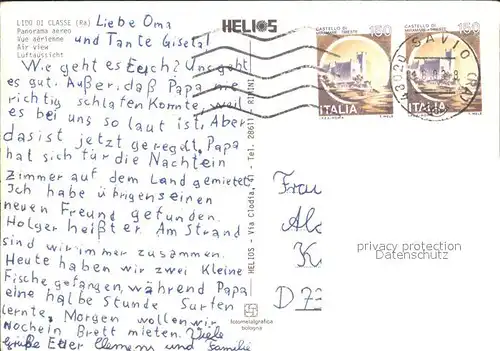 LIDO DI CLASSE (Ra)
Panorama aereo
Vue aérienne
Air view
Luftaussicht
Liebe Oma
und Tante Gisela!
Wie geht es Euch? Uns geht
es gut. Außer, daß Papa nie
richtig schlafen konnte, weil
es bei uns so laut ist. Aber
das ist jetzt geregelt. Papa
hat sich für die Nacht ein
Zimmer auf dem Land gemietet.
Ich habe übrigens einen
neuen Freund gefunden.
Holger heißt er. Am Strand
sind wir immer zusammen.
Heute haben wir zwei Kleine
Fische gefangen, während Papa
eine halbe Stunde Surfen
lernte. Morgen wollen wir
noch ein Brett mieten. Viele
grüße Euer Clemens und Familie
HELIOS
HELIOS - Via Clodia, 41 - Tel. 28611 - RIMINI
fotometalgrafica
bologna
CASTELLO DI
MIRAMARE - TRIESTE
150
ITALIA
CASTELLO DI
MIRAMARE - TRIESTE
150
ITALIA
SAVIO (RA)
Frau
K
D 73
privacy protection
Datenschutz